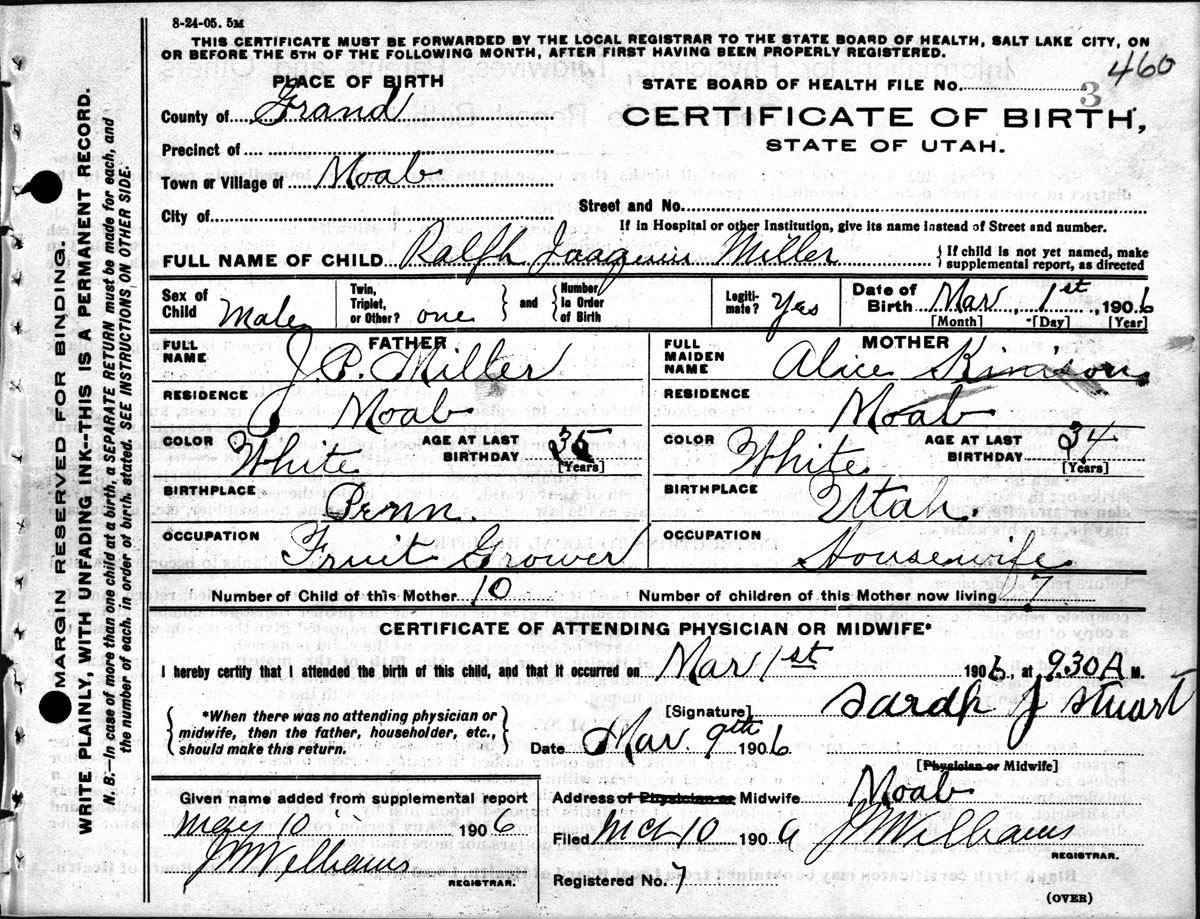 8-24-05. 5M
THIS CERTIFICATE MUST BE FORWARDED BY THE LOCAL REGISTRAR TO THE STATE BOARD OF HEALTH, SALT LAKE CITY, ON
OR BEFORE THE 5TH OF THE FOLLOWING MONTH, AFTER FIRST HAVING BEEN PROPERLY REGISTERED.
460
PLACE OF BIRTH
STATE BOARD OF HEALTH FILE No. 3
County of Grand
CERTIFICATE OF BIRTH,
STATE OF UTAH.
Precinct of
Town or Village of Moab
City of
Street and No.
If in Hospital or other Institution, give its name instead of Street and number.
FULL NAME OF CHILD Ralph Joaquin Miller { If child is not yet named, make supplemental report, as directed
Sex of Child Male Twin, Triplet, or Other? one } and { Number, in Order of Birth Legitimate? Yes Date of Birth Mar, 1st, 1906
[Month] [Day] [Year]
FATHER MOTHER
FULL NAME J. P. Miller FULL MAIDEN NAME Alice Kinison
RESIDENCE Moab RESIDENCE Moab
COLOR White AGE AT LAST BIRTHDAY 35 [Years] COLOR White AGE AT LAST BIRTHDAY 34 [Years]
BIRTHPLACE Penn. BIRTHPLACE Utah.
OCCUPATION Fruit Grower OCCUPATION Housewife
Number of Child of this Mother 10 Number of children of this Mother now living 7
CERTIFICATE OF ATTENDING PHYSICIAN OR MIDWIFE*
I hereby certify that I attended the birth of this child, and that it occurred on Mar 1st 1906., at 9.30 A M.
{ *When there was no attending physician or midwife, then the father, householder, etc., should make this return. }
[Signature] Sarah J Stuart
Date Mar. 9th 1906
[Physician or Midwife]
Given name added from supplemental report
May 10 1906
J W Williams
REGISTRAR.
Address of Physician or Midwife Moab
Filed Mch 10 1906 J W Williams
REGISTRAR.
Registered No. 7
(OVER)
MARGIN RESERVED FOR BINDING.
WRITE PLAINLY, WITH UNFADING INK--THIS IS A PERMANENT RECORD.
N. B.—In case of more than one child at a birth, a SEPARATE RETURN must be made for each, and
the number of each, in order of birth, stated. SEE INSTRUCTIONS ON OTHER SIDE.